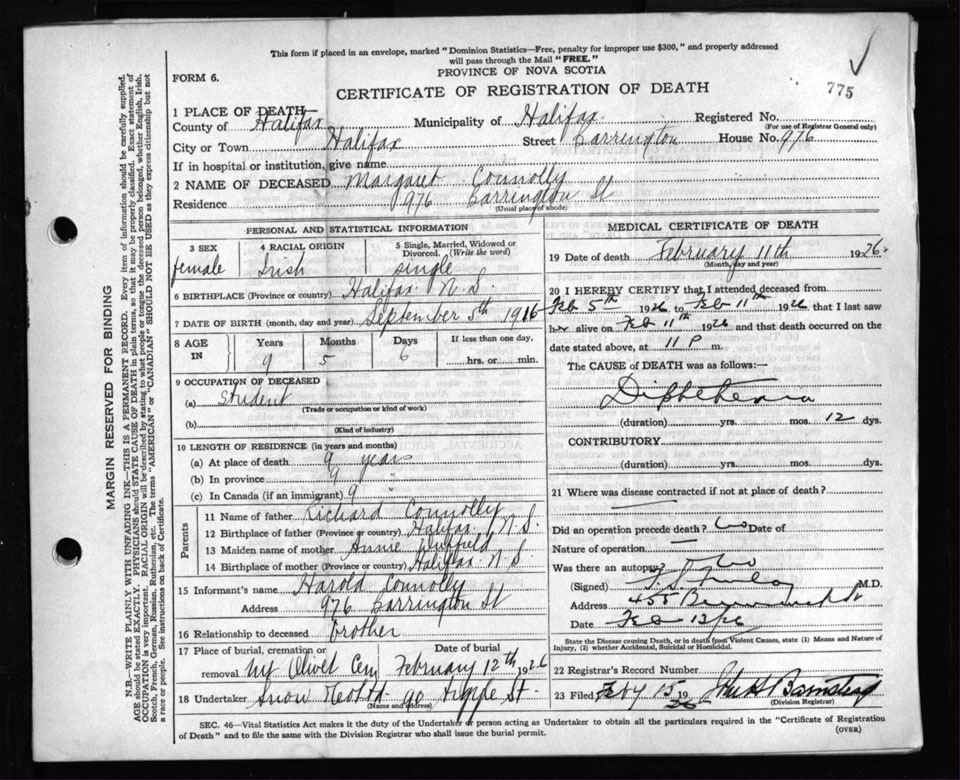 This form if placed in an envelope, marked "Dominion Statistics—Free, penalty for improper use $300," and properly addressed
will pass through the Mail "FREE."
FORM 6.
PROVINCE OF NOVA SCOTIA
775
CERTIFICATE OF REGISTRATION OF DEATH
1 PLACE OF DEATH—
County of Halifax Municipality of Halifax Registered No.
(For use of Registrar General only)
City or Town Halifax Street Barrington House No. 976
If in hospital or institution, give name
2 NAME OF DECEASED Margaret Connolly
Residence 976 Barrington St
(Usual place of abode)
PERSONAL AND STATISTICAL INFORMATION
3 SEX 4 RACIAL ORIGIN 5 Single, Married, Widowed or Divorced. (Write the word)
female Irish single
6 BIRTHPLACE (Province or country) Halifax N.S.
7 DATE OF BIRTH (month, day and year) September 5th 1916
8 AGE IN Years Months Days If less than one day.
9 5 6 hrs. or min.
9 OCCUPATION OF DECEASED
(a) Student
(Trade or occupation or kind of work)
(b)
(Kind of industry)
10 LENGTH OF RESIDENCE (in years and months)
(a) At place of death 9 years
(b) In province 9 "
(c) In Canada (if an immigrant) 9
Parents
11 Name of father Richard Connolly
12 Birthplace of father (Province or country) Halifax N.S.
13 Maiden name of mother Annie
14 Birthplace of mother (Province or country) Halifax N.S.
15 Informant's name Harold Connolly
Address 976 Barrington St
16 Relationship to deceased brother
17 Place of burial, cremation or removal Mt Olivet Cem Date of burial February 12th 1926
18 Undertaker Snow 90 Argyle St.
(Name and address)
MEDICAL CERTIFICATE OF DEATH
19 Date of death February 11th 1926
(Month, day and year)
20 I HEREBY CERTIFY that I attended deceased from
Feb 5th 1926 to Feb 11th 1926 that I last saw
her alive on Feb 11th 1926 and that death occurred on the
date stated above, at 11 P m.
The CAUSE of DEATH was as follows:—
Diphtheria
(duration) yrs. mos. 12 dys.
CONTRIBUTORY
(duration) yrs. mos. dys.
21 Where was disease contracted if not at place of death?
Did an operation precede death? No Date of
Nature of operation
Was there an autopsy? No
(Signed) M.D.
Address 455
Date Feb 12/26
State the Disease causing Death, or in death from Violent Causes, state (1) Means and Nature of
Injury, (2) whether Accidental, Suicidal or Homicidal.
22 Registrar's Record Number
23 Filed Feby 15 1926
(Division Registrar)
SEC. 46—Vital Statistics Act makes it the duty of the Undertaker or person acting as Undertaker to obtain all the particulars required in the "Certificate of Registration
of Death" and to file the same with the Division Registrar who shall issue the burial permit.
(OVER)
MARGIN RESERVED FOR BINDING
N.B.—WRITE PLAINLY WITH UNFADING INK—THIS IS A PERMANENT RECORD. Every item of information should be carefully supplied.
AGE should be stated EXACTLY. PHYSICIANS should STATE CAUSE OF DEATH in plain terms, so that it may be properly classified. Exact statement of
OCCUPATION is very important. RACIAL ORIGIN will be described by stating to what people or tongue the deceased person belonged, whether English, Irish,
Scotch, French, German, Russian, Ruthenian, etc. The terms "AMERICAN" or "CANADIAN" SHOULD NOT BE USED as they express citizenship but not
a race or people. See instructions on back of Certificate.